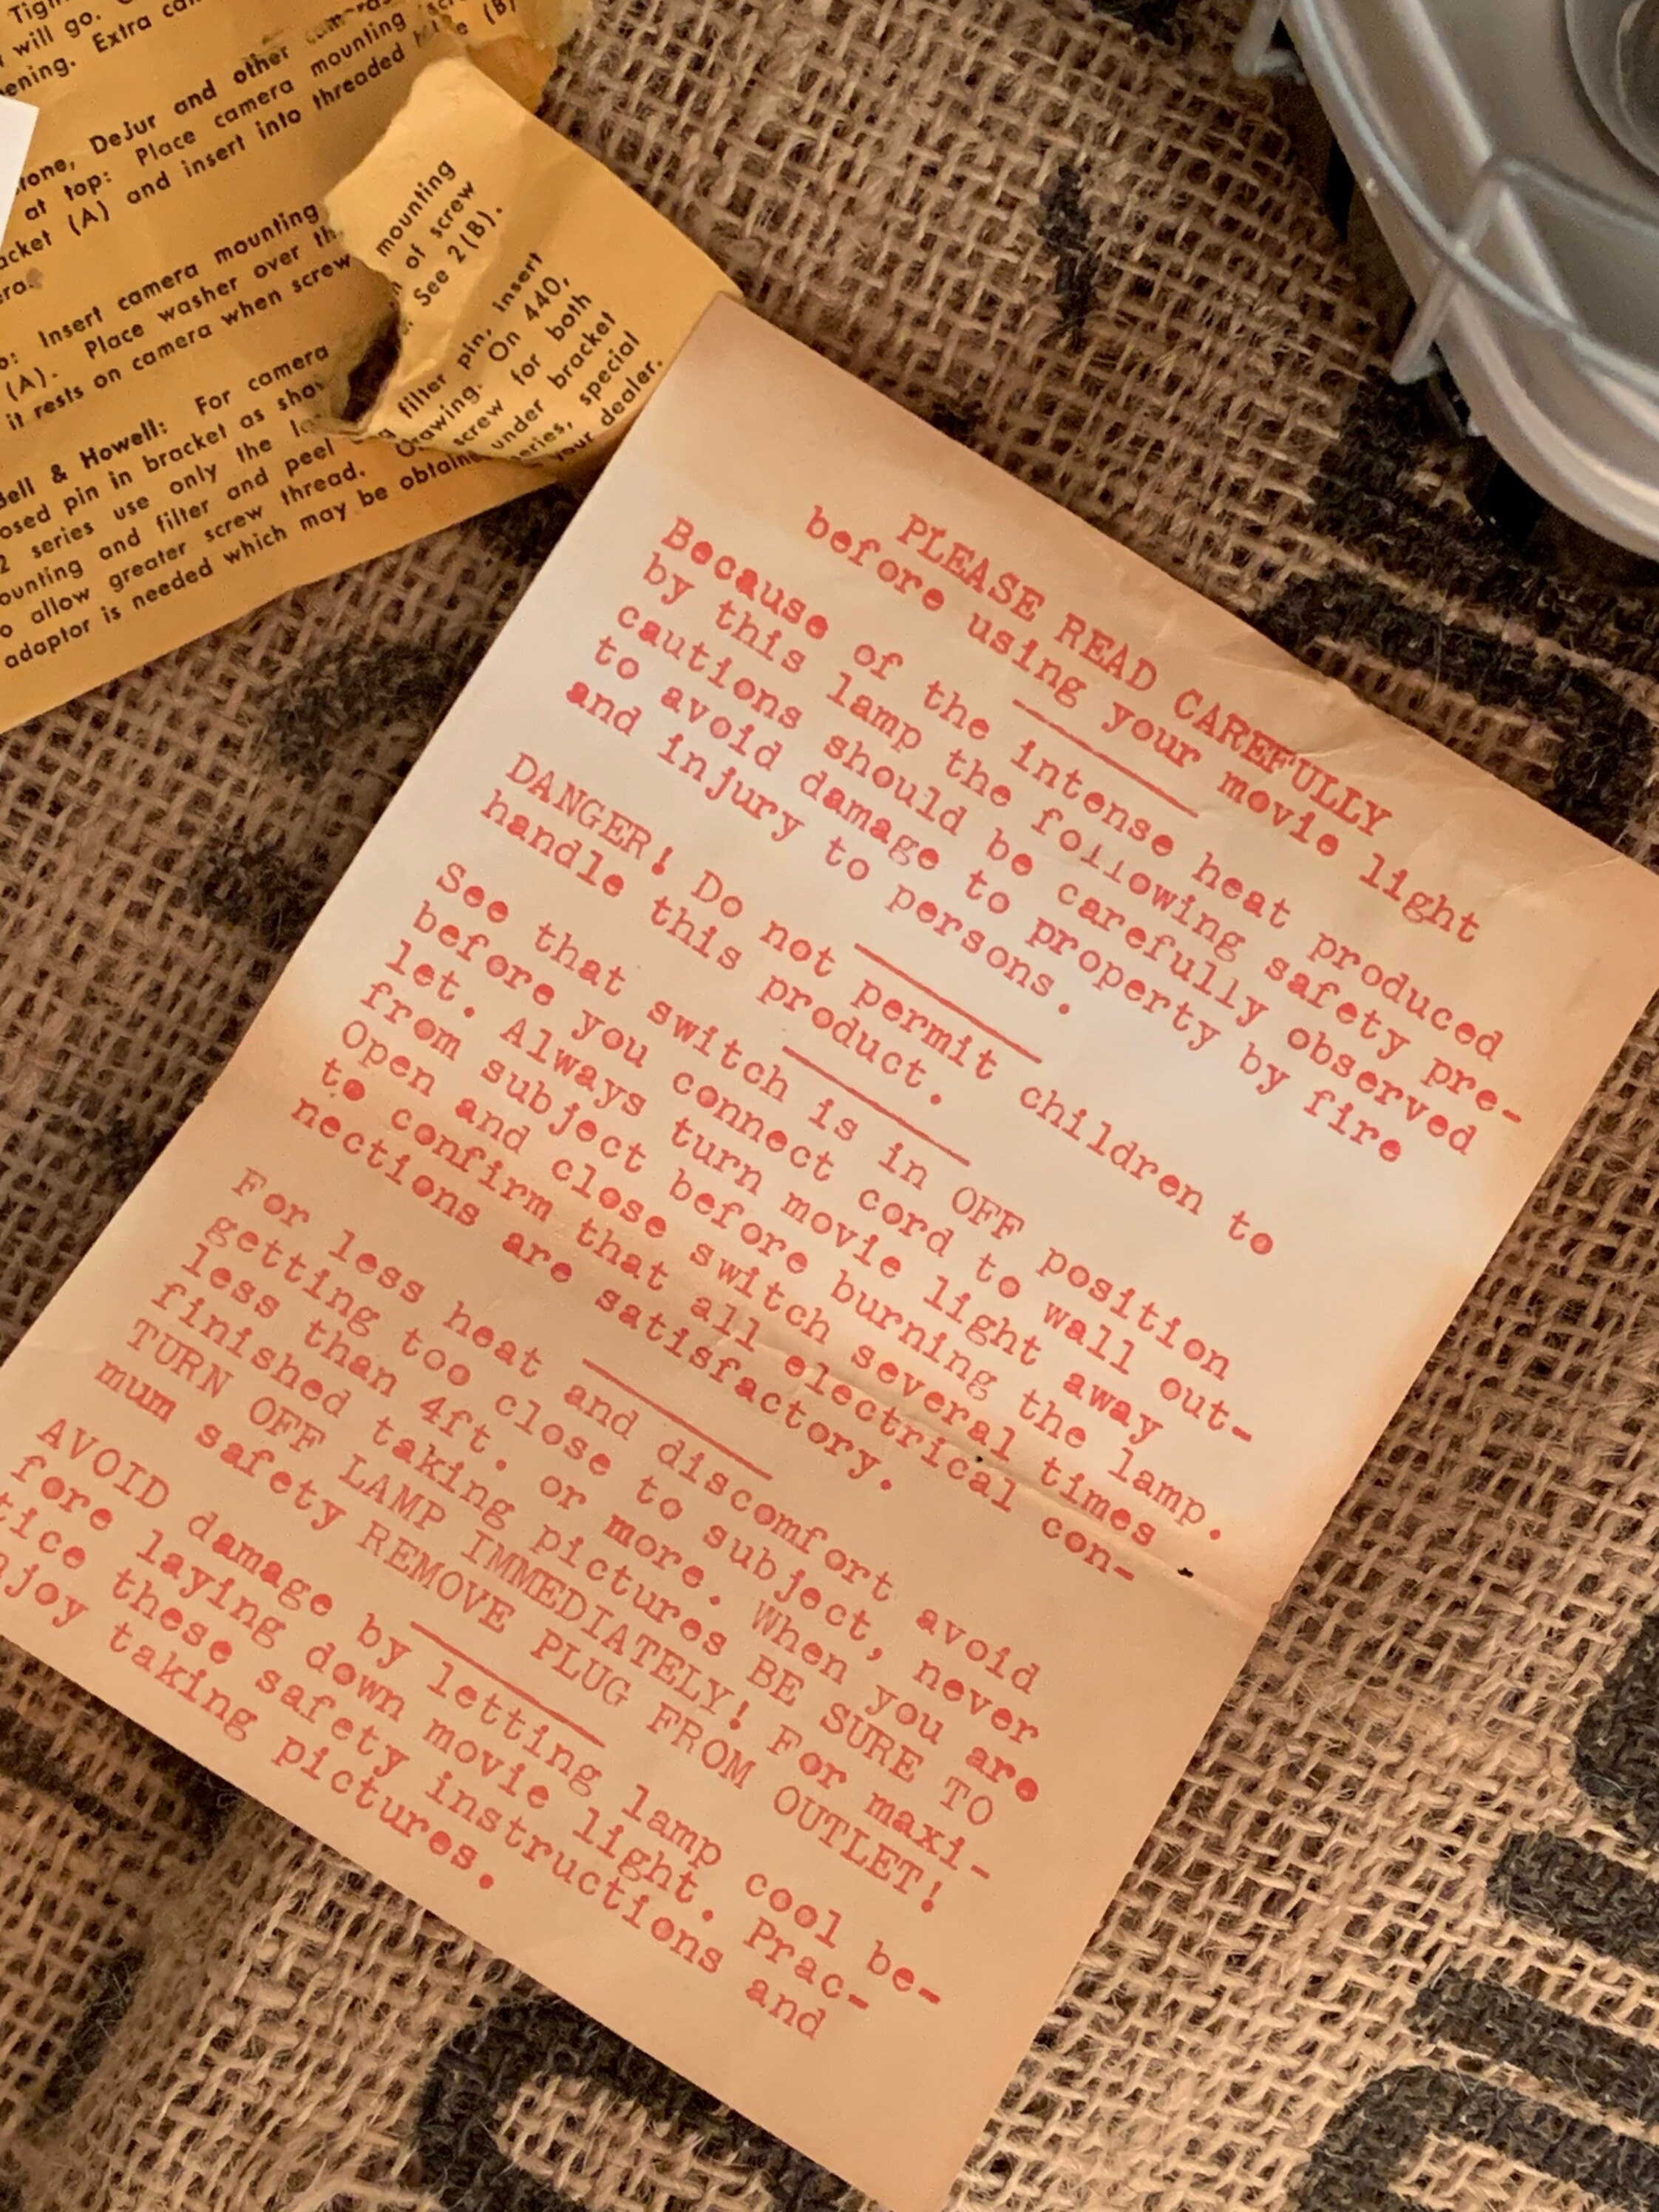 will go.
ening. Extra
tone, DeJur and other cameras
at top: Place camera mounting
acket (A) and insert into threaded (B)
Insert camera mounting
(A). Place washer over
it rests on camera when screw
Bell & Howell: For camera
osed pin in bracket as
2 series use only the
ounting and filter and peel
o allow greater screw thread.
adaptor is needed which may be
mounting
of screw
See 2(B).
filter pin, insert
On 440,
screw for both
under bracket
special
your dealer.
PLEASE READ CAREFULLY
before using your movie light
Because of the intense heat produced
by this lamp the following safety pre-
cautions should be carefully observed
to avoid damage to property by fire
and injury to persons.
DANGER! Do not permit children to
handle this product.
See that switch is in OFF position
before you connect cord to wall out-
let. Always turn movie light away
from subject before burning the lamp.
Open and close switch several times
to confirm that all electrical con-
nections are satisfactory.
For less heat and discomfort avoid
getting too close to subject, never
less than 4ft. or more. When you are
finished taking pictures BE SURE TO
TURN OFF LAMP IMMEDIATELY! For maxi-
mum safety REMOVE PLUG FROM OUTLET!
AVOID damage by letting lamp cool be-
fore laying down movie light. Prac-
tice these safety instructions and
njoy taking pictures.